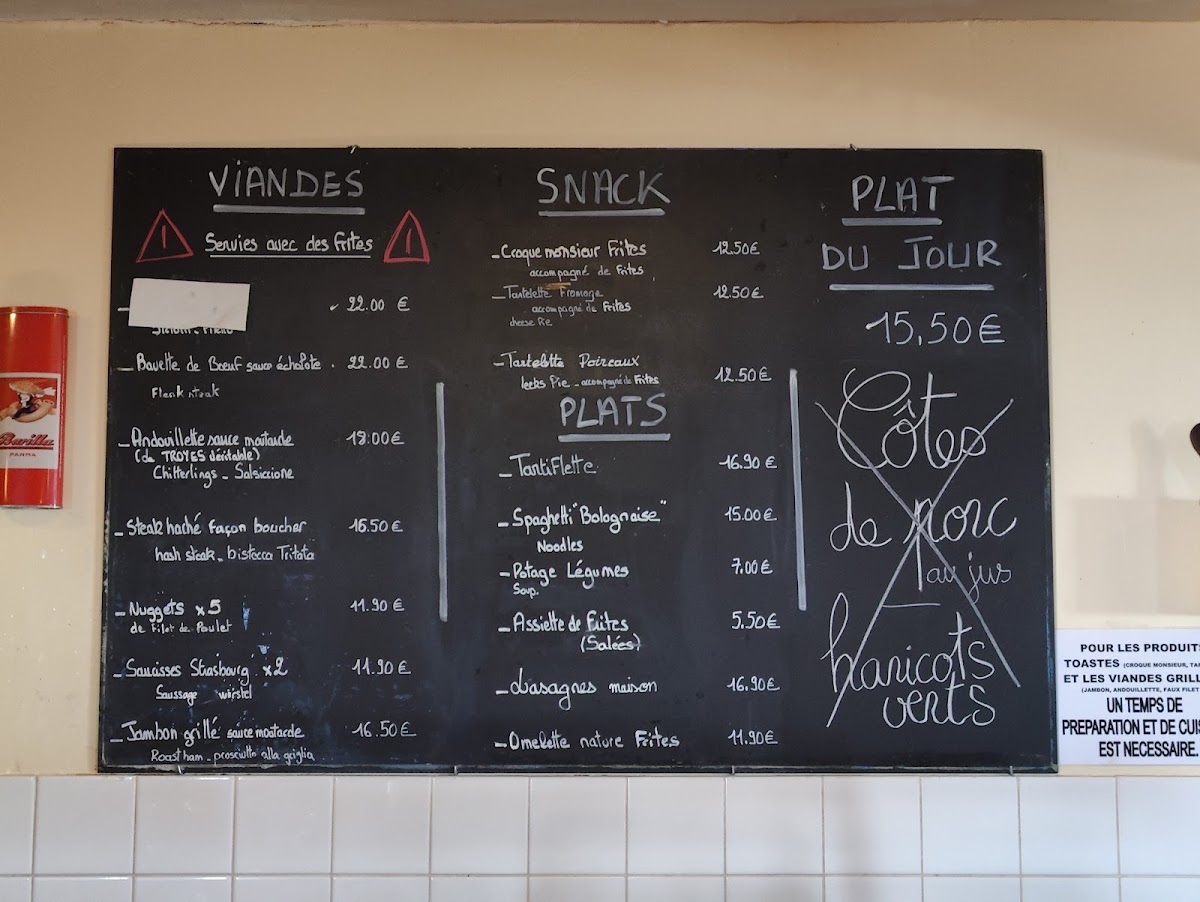 VIANDES
Servies avec des Frites
22.00 €
Bavette de Bœuf sauce échalote . 22.00 €
Flenk steak
_ Andouillette sauce moutarde 19.00€
(de TROYES Véritable)
Chitterlings _ Salsiccione
_ Steak haché Façon boucher 16.50 €
hash steak _ bistecca Tritata
_ Nuggets x 5 11.90 €
de Filet de Poulet
_ Saucisses Strasbourg x 2 11.90€
Saussage würstel
_ Jambon grillé sauce moutarde 16.50 €
Roast ham _ prosciutto alla griglia
SNACK
_ Croque monsieur Frites 12.50€
accompagné de Frites
_ Tartelette Fromage 12.50€
accompagné de Frites
cheese Pie
_ Tartelette Poireaux
leeks Pie _ accompagné de Frites 12.50€
PLATS
_ Tartiflette 16.90 €
_ Spaghetti "Bolognaise" 15.00€
Noodles
_ Potage Légumes 7.00€
Soup.
_ Assiette de Frites 5.50€
(Salées)
_ Lasagnes maison 16.90€
_ Omelette nature Frites 11.90€
PLAT
DU JOUR
15,50€
Côtes
de porc
au jus
haricots
verts
Barilla
PARMA
POUR LES PRODUITS
TOASTES (CROQUE MONSIEUR, TA
ET LES VIANDES GRILL
(JAMBON, ANDOUILLETTE, FAUX FILET
UN TEMPS DE
PREPARATION ET DE CUI
EST NECESSAIRE.